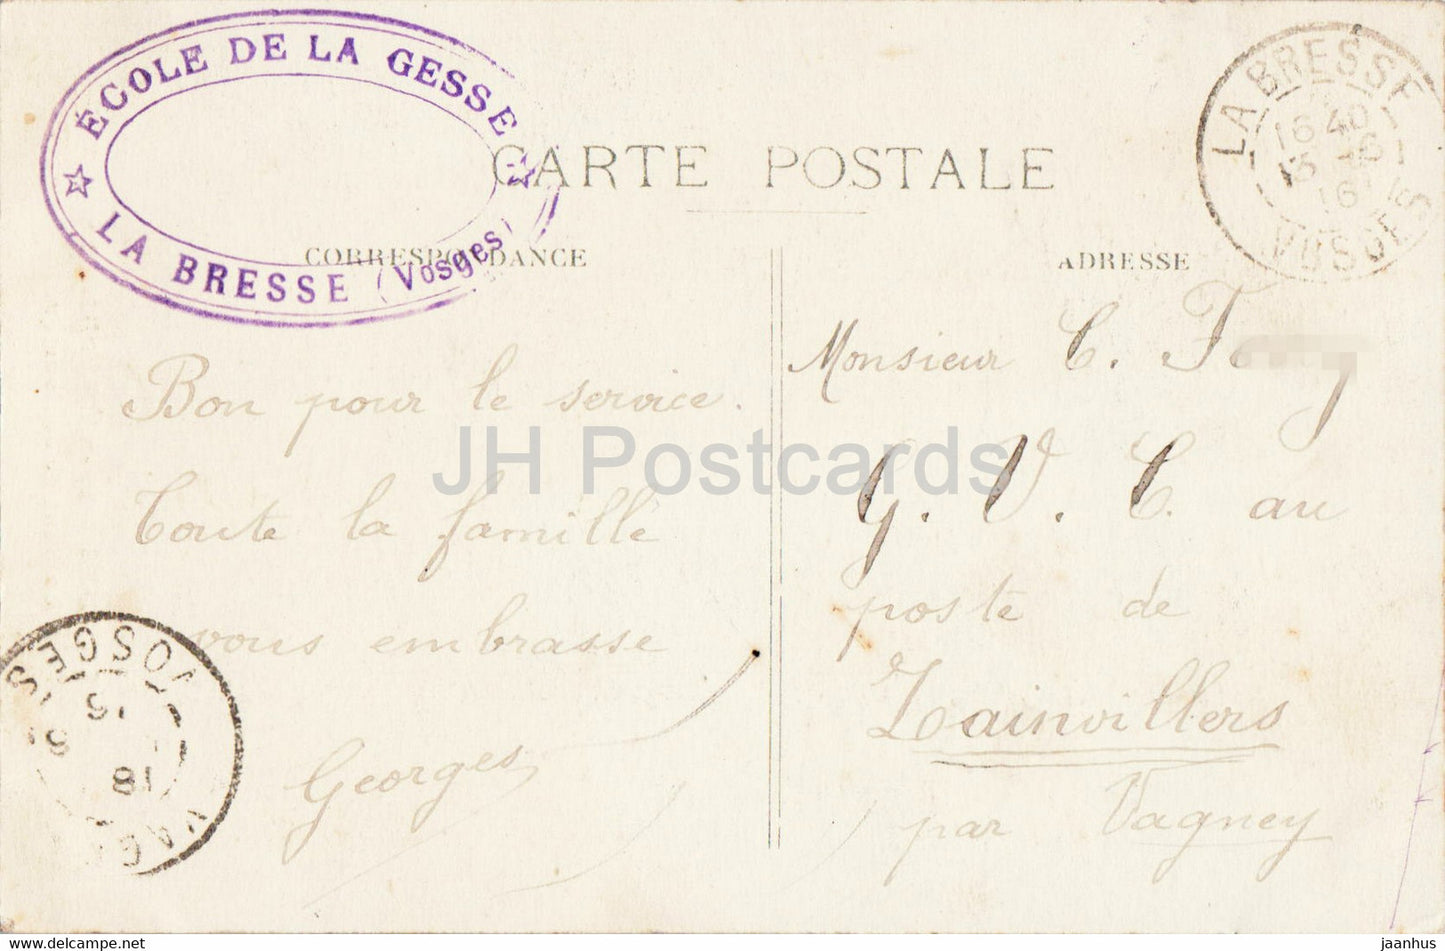 ÉCOLE DE LA GESSE
LA BRESSE (Vosges)
LA BRESSE
16 40
VOSGES
CARTE POSTALE
CORRESPONDANCE
ADRESSE
Bon pour le service.
Toute la famille
vous embrasse
Georges
Monsieur C.
G. V. C. au
poste de
Zainvillers
par Vagney
VOSGES
18
JH Postcards
www.delcampe.net
jaanhus